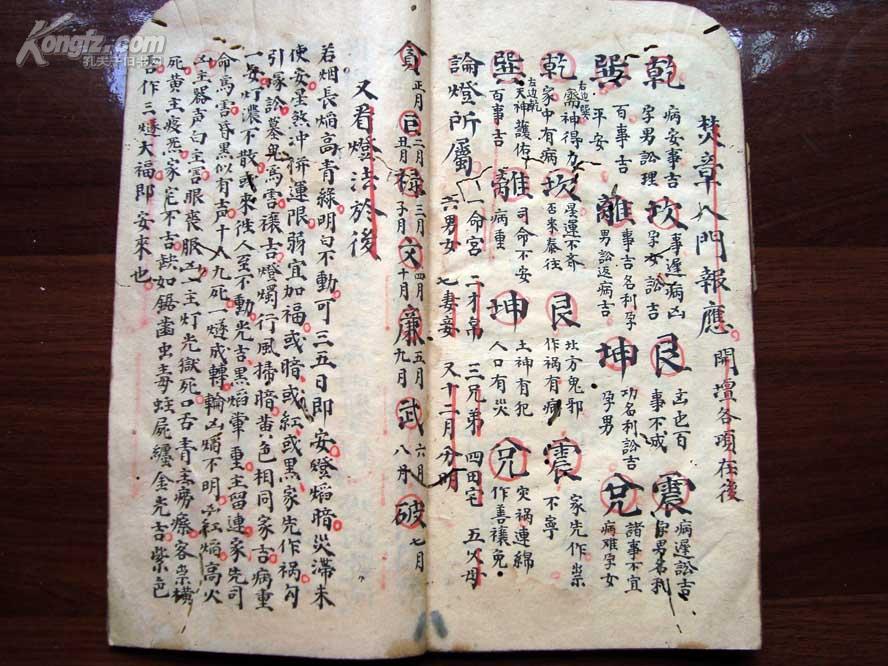 Kongfz.com
孔夫子旧书网
焚章八門報應 開壇各項在後
乾 病安事吉 孕男訟理 坎 事遲病凶 孕女訟吉 艮 百事不成 震 病遲訟吉 孕男名利
巽 百事吉 平安 離 事吉名利孕男訟返病吉 坤 功名利訟吉 孕男 兌 諸事不宜 病难孕女
右边
乾 齋神得力 家中有病 坎 星運不齐 否来泰往 艮 北方鬼邪 作祸有病 震 家先作祟 不寧
巽 天神護佑 百事吉 離 司命不安 病重 坤 土神有犯 人口有災 兌 灾祸連綿 作善禳免
論燈所屬 一命宮 二才帛 三兄弟 四田宅 五父母
六男女 七妻妾 又十二月分明
貪 正月 巨 二月 丑月 祿 三月 子月 文 四月 十月 廉 五月 九月 武 六月 八月 破 七月
又看燈法於後
若烟長焰高青綠明白不動可三五日即安燈焰暗災滯未
使安星煞冲併運限弱宜加福或暗或紅或黑家先作祸勾
引塚訟墓鬼為害禳吉燈燭行風掃暗黄色相同家吉病重
一安灯濃不散或来往人至不動光吉黑焰暈重主留連家先司
命為害昏黑似有声十八九死一燧成轉輪凶焰不明必紅焰高火
凶主器声白主害眼喪服凶主灯光獄死口舌青主痨瘵客祟横
死黄主疫炁家宅不吉 如鋸齒虫毒蛀屍纏金光吉紫色
吉作三燧大福即安來也